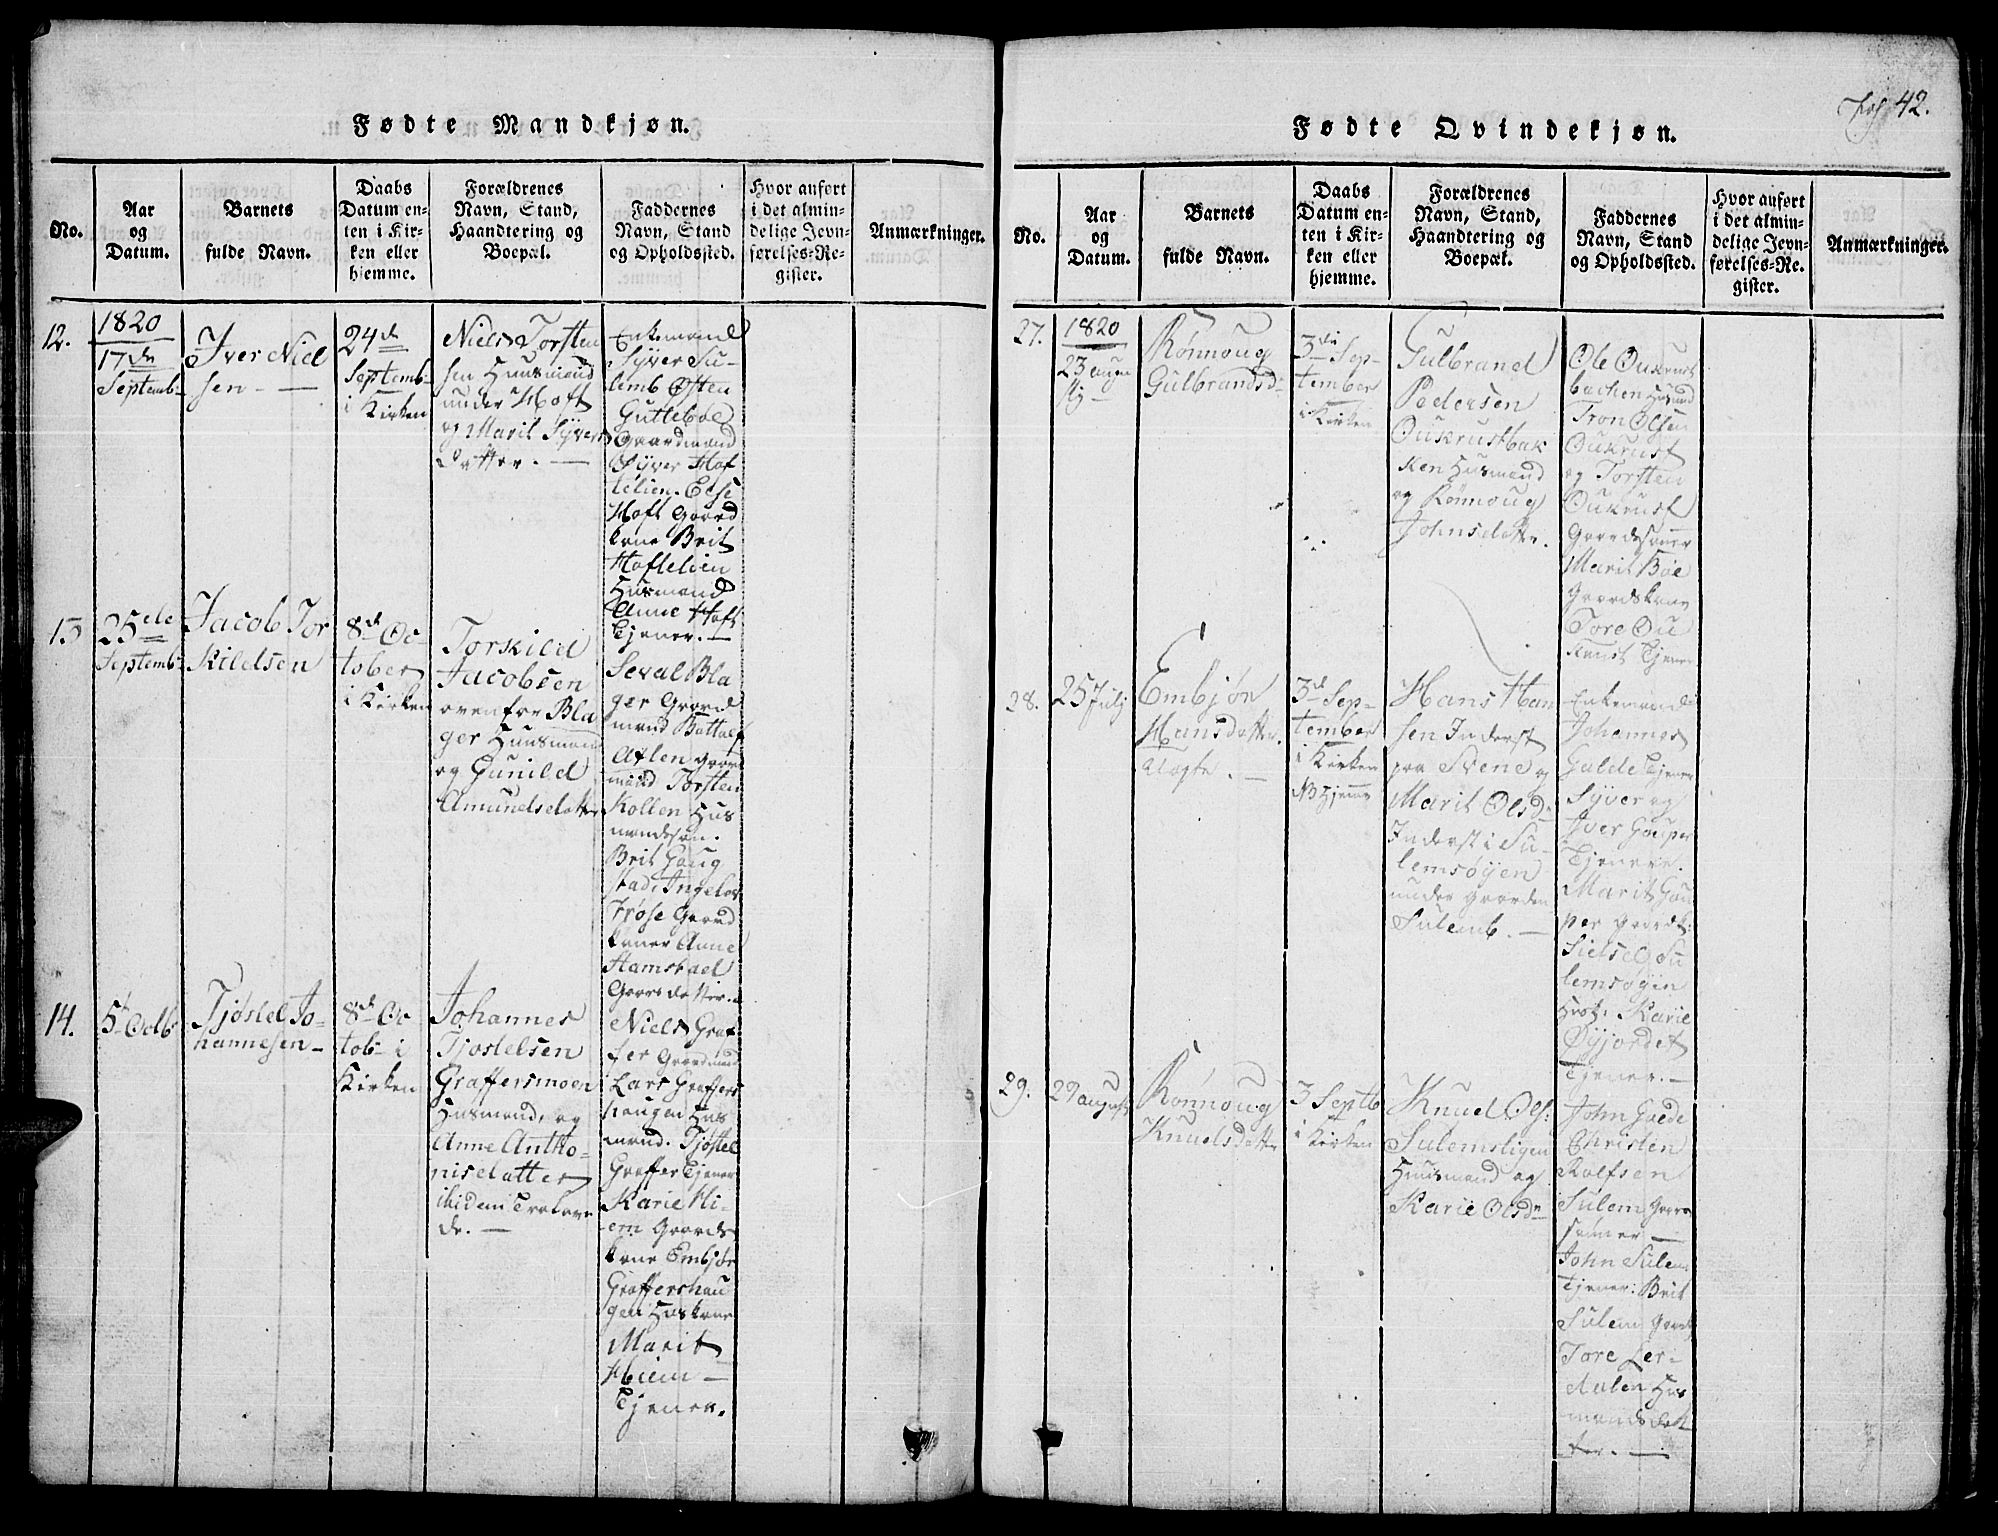 Fol 42.
Fødte Mandkjøn.
No.
Aar
og
Datum.
Barnets
fulde Navn.
Daabs
Datum en-
ten i Kir-
ken eller
hjemme.
Forældrenes
Navn, Stand,
Haandtering og
Boepæl.
Faddernes
Navn, Stand
og Opholdssted.
Hvor anført
i det almin-
delige Jevn-
førelses-Re-
gister.
Anmærkninger.
12.
1820
17 de
Septemb.
Iver Niel
sen -
24 d
Septemb.
i Kirken
Niels Torsten
sen Huusmand
under Hoft
og Marit Syvers
Datter. -
Enkemand
Syver Su-
lemb Østen
Guttebøl
Gaardmand
Øyver Hof
lelien. Else
Hoft Gaard
kone Brit
Hoftelien
Husmand
Anne Hoft
Tjener. -
13
25 de
Septemb.
Jacob Tor
kildsen
8 d Oc
tober
i Kirken
Torkild
Jacobsen
ovenfor Bla
ger Huusmand
og Gunild
Amundsdatter
Seval Bla
ger Gaard
mand Battolf
Aflen Gaard
mand Torsten
Kollen Hus
mandssøn.
Brit Gaug
stad Ingebor
Frøse Gaard
koner Anne
Hamstad
Gaardsdatter.
14.
5t Octb
Tjøstel Jo-
hannesen -
8 d Oc
tob i
Kirken
Johannes
Tjostelsen
Graffersmoen
Husmand, og
Anne Antho-
nisdatter
ibidem Trolove
de. -
Niels Graf-
fer Gaardmand
Lars Graffers
haugen Hus
mand. Tjøstel
Graffer Tjener
Karie Hi-
em Gaards
kone Embjør
Graffershau
gen Huskone
Marit
Hiem -
Tjener.
Fødte Qvindekjøn.
No.
Aar
og
Datum.
Barnets
fulde Navn.
Daabs
Datum en-
ten i Kir-
ken eller
hjemme.
Forældrenes
Navn, Stand,
Haandtering og
Boepæl.
Faddernes
Navn, Stand
og Opholdssted.
Hvor anført
i det almin-
delige Jevn-
førelses-Re-
gister.
Anmærkninger.
27.
1820
23 augu
stj -
Rønnoug
Gulbrandsd.
3 di Sep-
tember
i Kirken
Gulbrand
Pedersen
Oukrustbak
ken Husmand
og Rønnoug
Johnsdatter.
Ole Oukrust
bachen Husmd
Tron Olsen
Oukrust
og Torsten
Oukrust
Gaardsønner
Marit Bøe
Gaardskone
Tore Ou
krust Tjener
28.
25 Julj
Embjør
Hansdatter
Uægte. -
3 d Sep-
tember
i Kirken
NB Hjemme
Hans Han
sen Inderst
paa Svene og
Marit Olsd
Inderst i Su-
lemsøyen
under Gaarden
Sulemb. -
Enkemand
Johannes
Galde Tjener
Syver og
Iver Gouper
Tjenere.
Marit Gou
per Gaardk:
Sidsel Su
lemsøyen
Husk: Karie
Øyjordet
Tjener. -
29.
29 august
Rønnoug
Knudsdatter
3 Septb
i Kirken
Knud Ols.
Sulemsligen
Huusmand og
Karie Olsd
John Gaede
Christen
Rolfsen
Sulem Gaard
sønner -
John Sulem
Tjener: Brit
Sulem Gaardk
Tore Ler-
dalen Hus
mands dat
ter. -